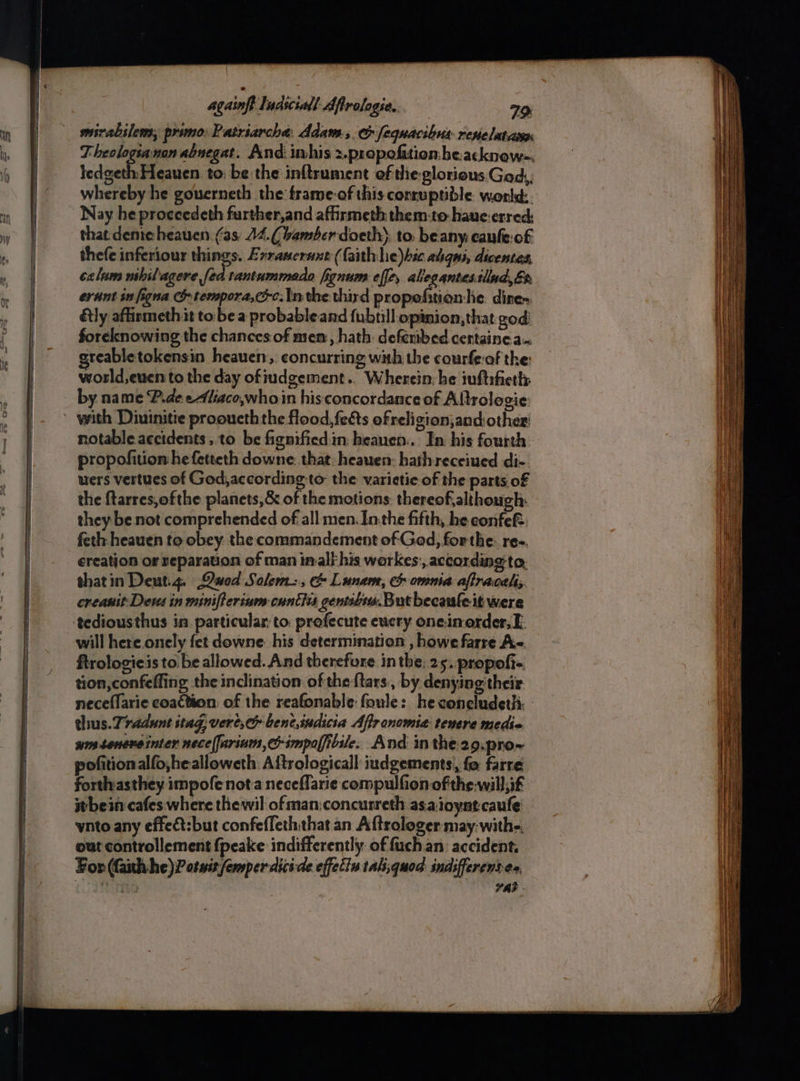 againſt Iudiciall Aſtrologie. 79
mirabilem, primo Patriarcha Adam, & ſequacibus reuelatam
Theologia non abnegat. And in his 2. propoſition he acknow-
ledgeth Heauen to be the inſtrument of the glorious God,
whereby he gouerneth the frame of this corruptible world:
Nay he proceedeth further, and affirmeth them to haue erred
that denie heauen (as M. Chamber doeth) to be any cauſe of
theſe inferiour things. Errauerunt (ſaith he) hic aliqui, dicentes,
cælum nihil agere, ſed tantummodo ſignum eſſe, allegantes illud, Et
erunt in ſigna & tempora, &c. In the third propoſition he dire-
ctly affirmeth it to be a probable and ſubtill opinion, that god
foreknowing the chances of men, hath deſcribed certaine a-
greable tokens in heauen, concurring with the courſe of the
world, euen to the day of iudgement. Wherein he iuſtifieth
by name P. de Aliaco, who in his concordance of Aſtrologie
with Diuinitie prooueth the flood, ſects of religion, and other
notable accidents, to be ſignified in heauen. In his fourth
propoſition he ſetteth downe that heauen hath receiued di-
uers vertues of God, according to the varietie of the parts of
the ſtarres, of the planets, & of the motions thereof, although
they be not comprehended of all men. In the fifth, he confeſ-
ſeth heauen to obey the commandement of God, for the re-
creation or reparation of man in all his workes, according to
that in Deut. 4. Quod Solem, & Lunam, & omnia aſtra cæli,
creauit Deus in miniſterium cunctis gentibus. But becauſe it were
tedious thus in particular to proſecute euery one in order, I
will here onely ſet downe his determination, how farre A-
ſtrologie is to be allowed. And therefore in the 25. propoſi-
tion, confeſſing the inclination of the ſtars, by denying their
neceſſarie coaction of the reaſonable ſoule: he concludeth
thus. Tradunt itaq; vere, & bene, iudicia Aſtronomiæ tenere medi-
um tenere inter neceſſarium, & impoſſibile. And in the 29. pro-
poſition alſo, he alloweth Aſtrologicall iudgements, ſo farre
forth as they impoſe not a neceſſarie compulſion of the will, if
it be in caſes where the wil of man concurreth as a ioynt cauſe
vnto any effect: but confeſſeth that an Aſtrologer may with-
out controllement ſpeake indifferently of ſuch an accident.
For (ſaith he) Potuit ſemper dici de effectu tali, quod indifferenter